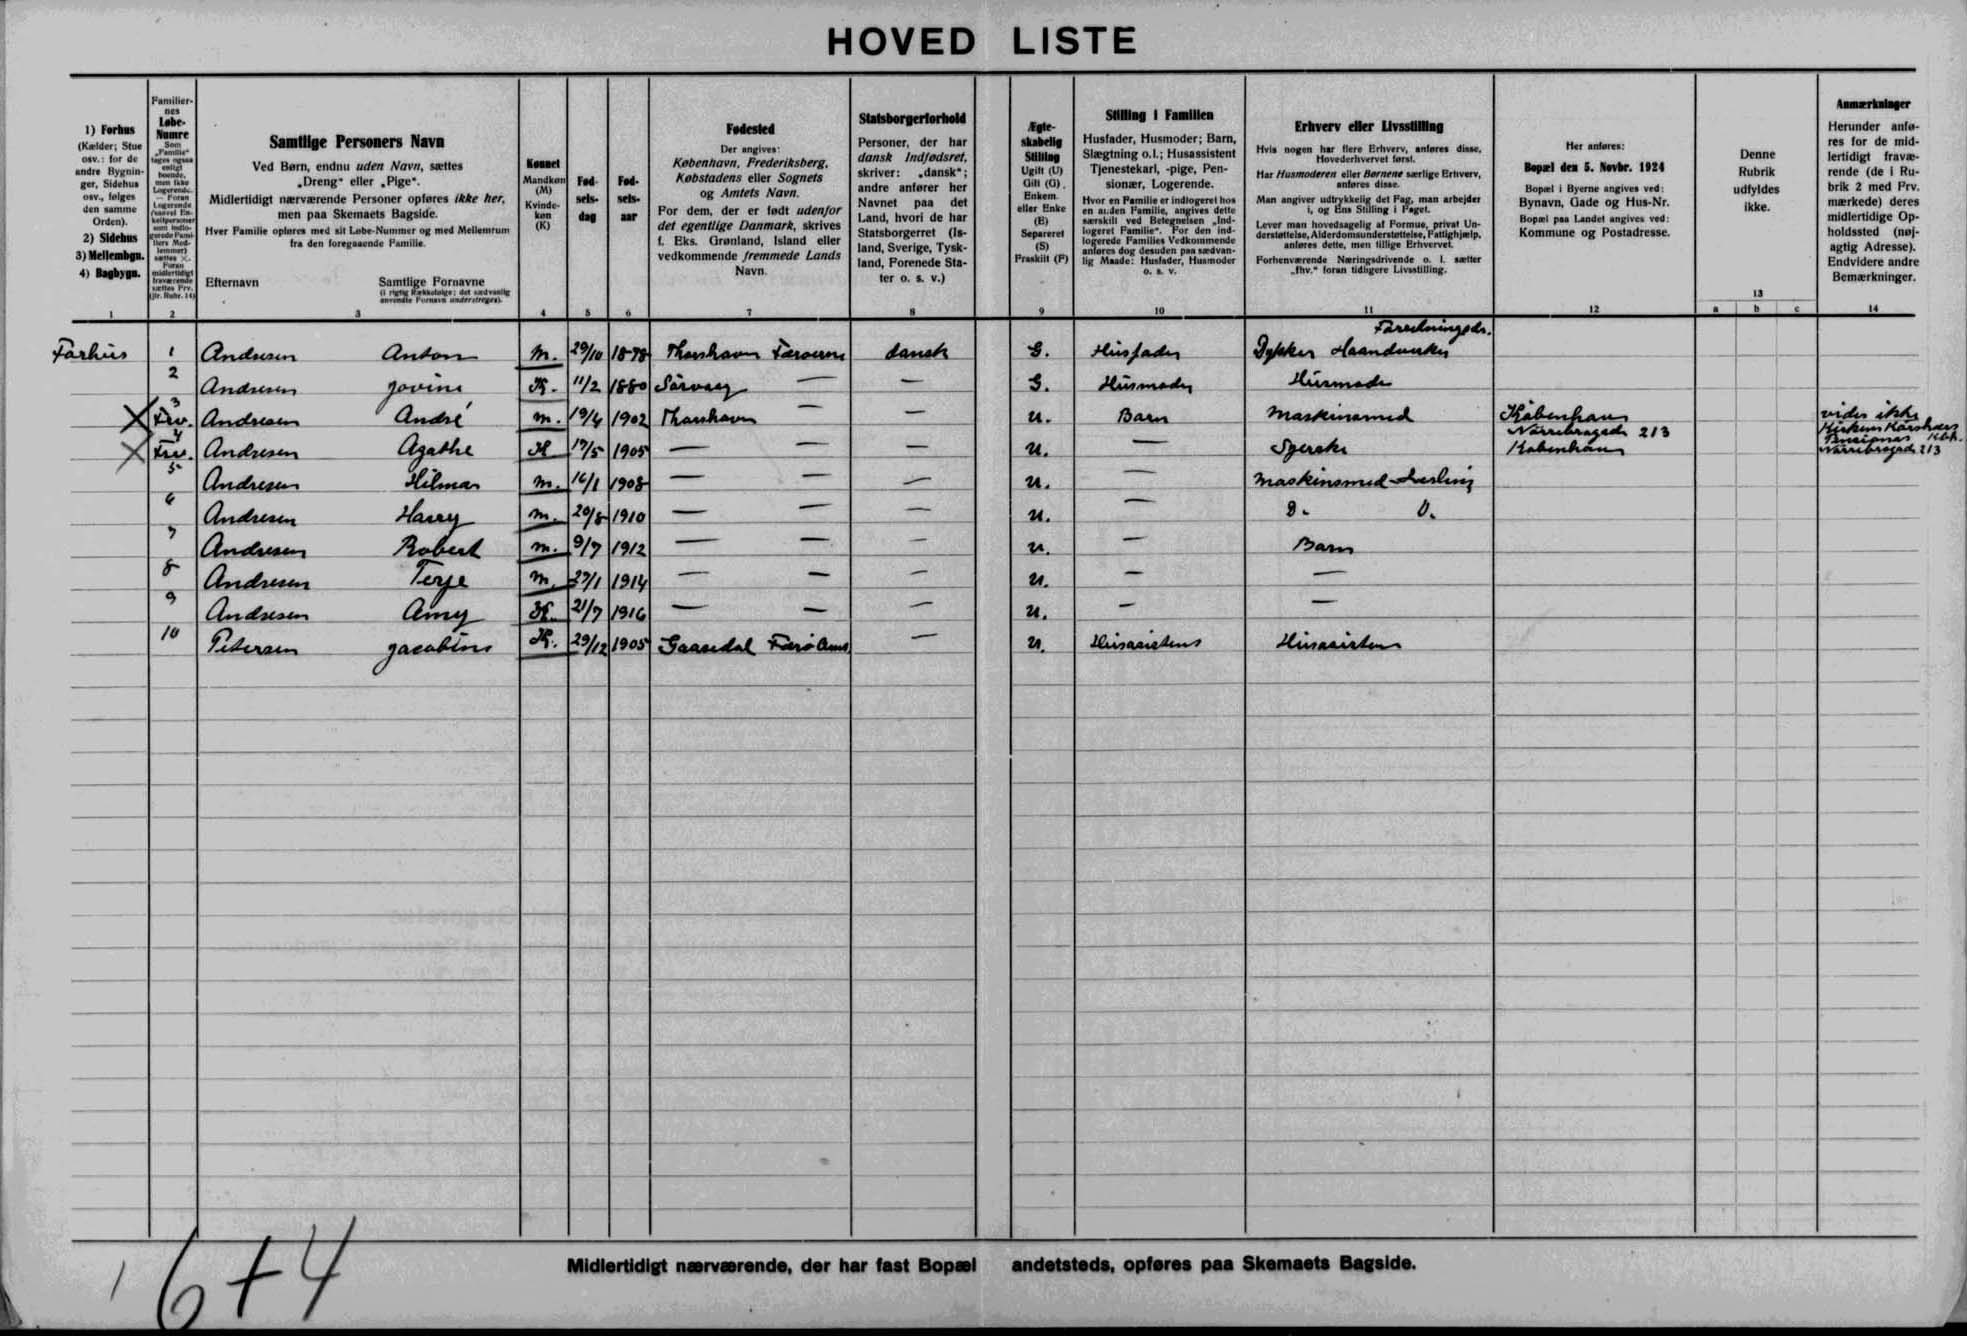 HOVED LISTE
1) Forhus
(Kælder; Stue
osv.: for de
andre Bygnin-
ger, Sidehus
osv., følges
den samme
Orden).
2) Sidehus
3) Mellembgn.
4) Bagbygn.
1
Familier-
nes
Løbe-
Numre
Som
„Familie“
tages ogsaa
enligt
boende,
men ikke
Logerende.
— Foran
Logerende
(saavel En-
keltpersoner
som indlo-
gerede Fami-
liers Med-
lemmer)
sættes ×.
Foran
midlertidigt
fraværende
sættes Frv.
(jfr. Rubr. 14)
2
Samtlige Personers Navn
Ved Børn, endnu uden Navn, sættes
„Dreng“ eller „Pige“.
Midlertidigt nærværende Personer opføres ikke her,
men paa Skemaets Bagside.
Hver Familie opføres med sit Løbe-Nummer og med Mellemrum
fra den foregaaende Familie.
Efternavn Samtlige Fornavne
(i rigtig Rækkefølge; det sædvanlig
anvendte Fornavn understreges).
3
Kønnet
Mandkøn
(M)
Kvinde-
køn
(K)
4
Fød-
sels-
dag
5
Fød-
sels-
aar
6
Fødested
Der angives:
København, Frederiksberg,
Købstadens eller Sognets
og Amtets Navn.
For dem, der er født udenfor
det egentlige Danmark, skrives
f. Eks. Grønland, Island eller
vedkommende fremmede Lands
Navn.
7
Statsborgerforhold
Personer, der har
dansk Indfødsret,
skriver: „dansk“;
andre anfører her
Navnet paa det
Land, hvori de har
Statsborgerret (Is-
land, Sverige, Tysk-
land, Forenede Sta-
ter o. s. v.)
8
Ægte-
skabelig
Stilling
Ugift (U)
Gift (G),
Enkem.
eller Enke
(E)
Separeret
(S)
Fraskilt (F)
9
Stilling i Familien
Husfader, Husmoder; Barn,
Slægtning o.l.; Husassistent
Tjenestekarl, -pige, Pen-
sionær, Logerende.
Hvor en Familie er indlogeret hos
en anden Familie, angives dette
særskilt ved Betegnelsen „Ind-
logeret Familie“. For den ind-
logerede Families Vedkommende
anføres dog desuden paa sædvan-
lig Maade: Husfader, Husmoder
o. s. v.
10
Erhverv eller Livsstilling
Hvis nogen har flere Erhverv, anføres disse,
Hovederhvervet først.
Har Husmoderen eller Børnene særlige Erhverv,
anføres disse.
Man angiver udtrykkelig det Fag, man arbejder
i, og Ens Stilling i Faget.
Lever man hovedsagelig af Formue, privat Un-
derstøttelse, Alderdomsunderstøttelse, Fattighjælp,
anføres dette, men tillige Erhvervet.
Forhenværende Næringsdrivende o. l. sætter
„fhv.“ foran tidligere Livsstilling.
11
Her anføres:
Bopæl den 5. Novbr. 1924
Bopæl i Byerne angives ved:
Bynavn, Gade og Hus-Nr.
Bopæl paa Landet angives ved:
Kommune og Postadresse.
12
Denne
Rubrik
udfyldes
ikke.
13
a b c
Anmærkninger
Herunder anfø-
res for de mid-
lertidigt fravæ-
rende (de i Ru-
brik 2 med Frv.
mærkede) deres
midlertidige Op-
holdssted (nøj-
agtig Adresse).
Endvidere andre
Bemærkninger.
14
Forhus 1 Andresen Anton M. 29/10 1878 Thorshavn Færøerne dansk G. Husfader Dykker Haandværker Forretningsdr.
2 Andresen Jovine K. 11/2 1880 Sørvaag — — G. Husmoder Husmoder
× 3 Frv. Andresen André M. 19/4 1902 Thorshavn — — U. Barn Maskinsmed København Nørrebrogade 213 vides ikke
× 4 Frv. Andresen Agathe K 17/5 1905 — — — U. — Syerske København Kirkens Korshærs Pensionat Kbh. Nørrebrogade 213
5 Andresen Hilmar M. 16/1 1908 — — — U. — Maskinsmed-Lærling
6 Andresen Harry M. 20/8 1910 — — — U. — D. O.
7 Andresen Robert M. 9/7 1912 — — — U. — Barn
8 Andresen Terje M. 27/1 1914 — — — U. — —
9 Andresen Amy K. 21/7 1916 — — — U. — —
10 Petersen Jacobine K. 29/12 1905 Gaasedal Færø Amt — U. Husasistent Husasistent
Midlertidigt nærværende, der har fast Bopæl andetsteds, opføres paa Skemaets Bagside.
1 6+4